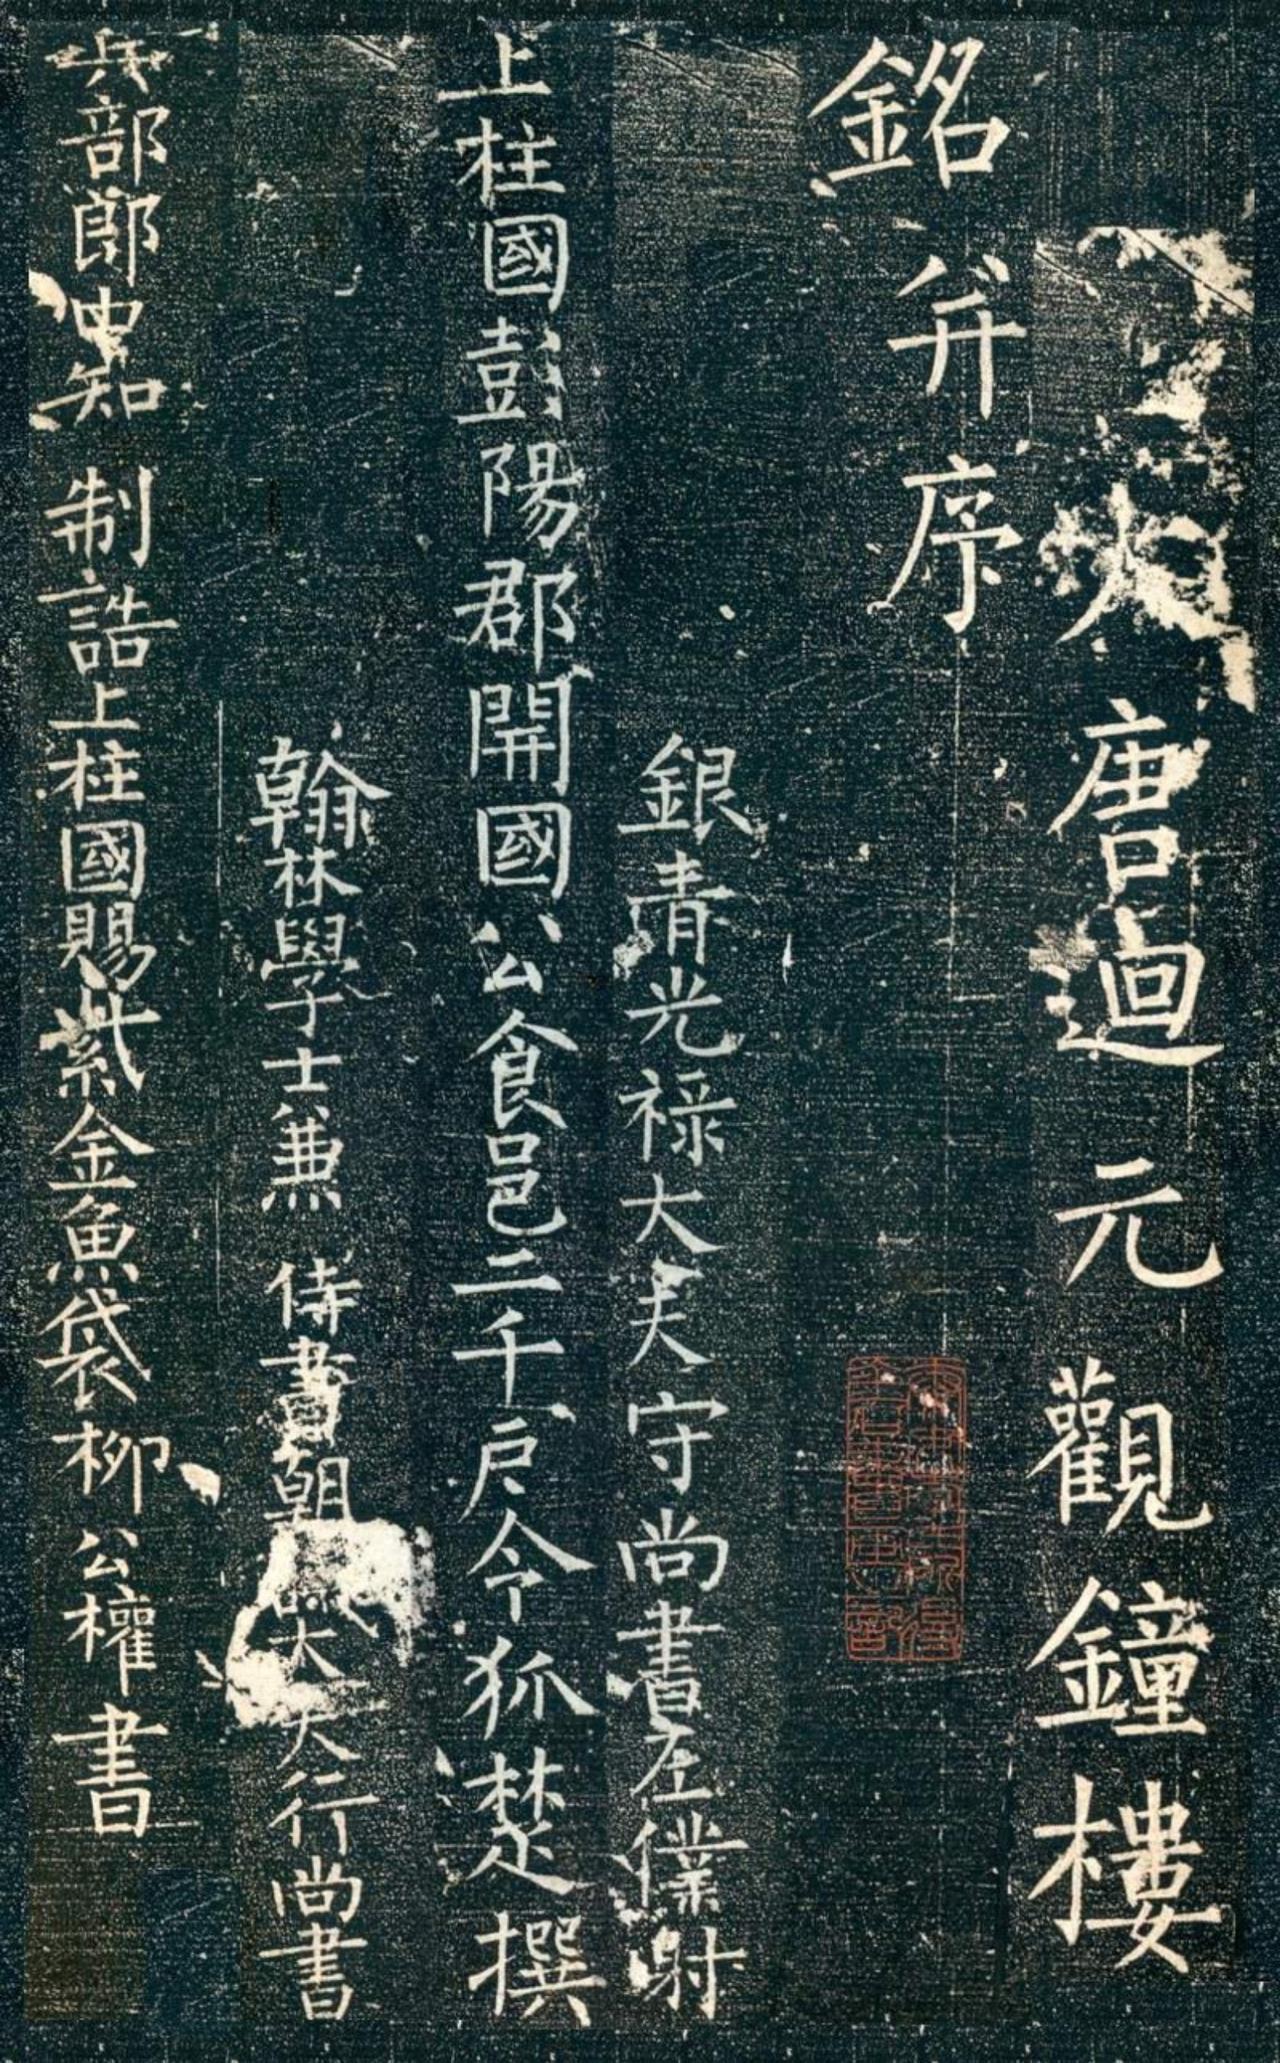 大唐迴元觀鐘樓
銘并序
銀青光祿大夫守尚書左僕射
上柱國彭陽郡開國公食邑二千戶令狐楚撰
翰林學士兼侍書朝議大夫行尚書
兵部郎中知制誥上柱國賜紫金魚袋柳公權書